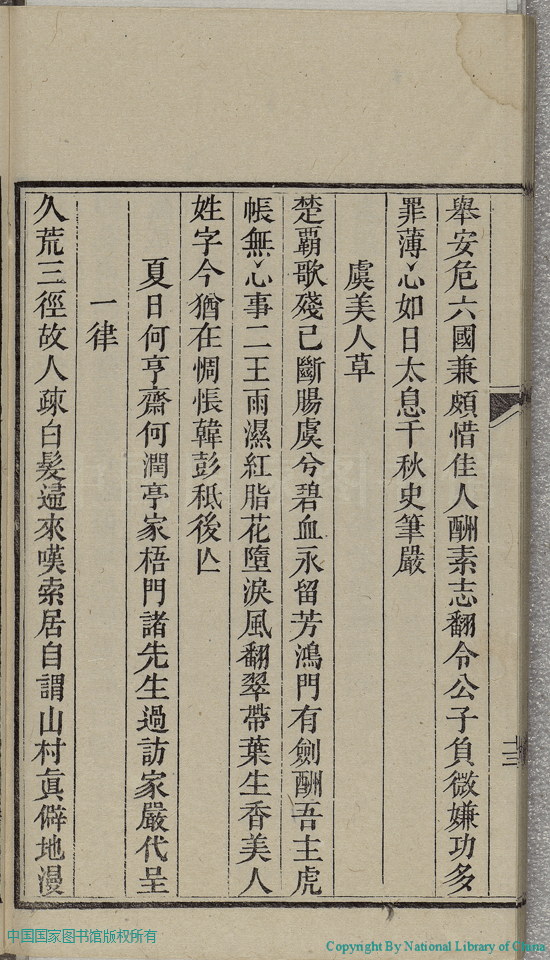 舉安危六國兼頗惜佳人酬素志翻令公子負微嫌功多
罪薄心如日太息千秋史筆嚴
虞美人草
楚覇歌殘已斷腸虞兮碧血永留芳鴻門有劍酬吾主虎
帳無心事二王雨濕紅脂花墮淚風翻翠帶葉生香美人
姓字今猶在惆悵韓彭秖後亾
夏日何亨齋何潤亭家梧門諸先生過訪家嚴代呈
一律
久荒三徑故人疎白髮邇來嘆索居自謂山村眞僻地漫
十三
中国国家图书馆版权所有
Copyright By National Library of China